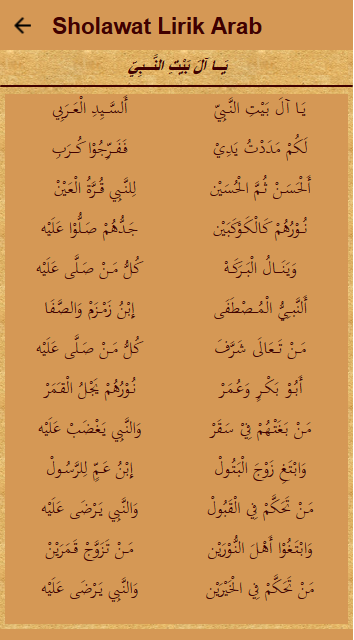 Sholawat Lirik Arab
يَــا آلَ بَيْتِ النَّــبِيّ
يَـا آلَ بَيْتِ النَّـبِيّ أَلسَّـيِدِ الْعَـرَبِي
لَكُمْ مَـدَدْتُ يَدِيْ فَفَـرِّجُوْا كُـرَبِ
أَلْحَسَنْ ثُمَّ الْحُسَيْن لِلنَّبِي قُـرَّةُ الْعَيْنْ
نُـوْرُهُمْ كَالْكَوْكَبَيْن جَدُّهُمْ صَلُّوْا عَلَيْه
وَيَنَـالُ الْبَـرَكَـهْ كُلُّ مَـنْ صَلَّى عَلَيْه
أَلنَّبِيُّ الْمُـصْطَفَى إِبْنُ زَمْـزَمْ وَالصَّفَا
مَـنْ تَـعَالَى شَرَّفَ كُلُّ مَـنْ صَلَّى عَلَيْه
أَبُـوْ بَكْـرٍ وَعُمَـرْ نُـوْرُهُمْ يَخْجُلُ الْقَمَرْ
مَـنْ بَغَتْهُمْ فِيْ سَقَرْ وَالنَّبِي يَغْضَبْ عَلَيْه
وَابْتَغِ زَوْجَ الْبَتُولْ إِبْنُ عَـمٍّ لِلرَّسُـولْ
مَـنْ تَحَكَّمْ فِي الْقَبُولْ وَالنَّبِي يَرْضَى عَلَيْه
وَابْتَغُوْا أَهْـلَ النُّوْرَيْن مَـنْ تَزَوَّجْ قَمَرَيْنْ
مَـنْ تَحَكَّمْ فِي الْخَيْرَيْنْ وَالنَّبِي يَرْضَى عَلَيْه